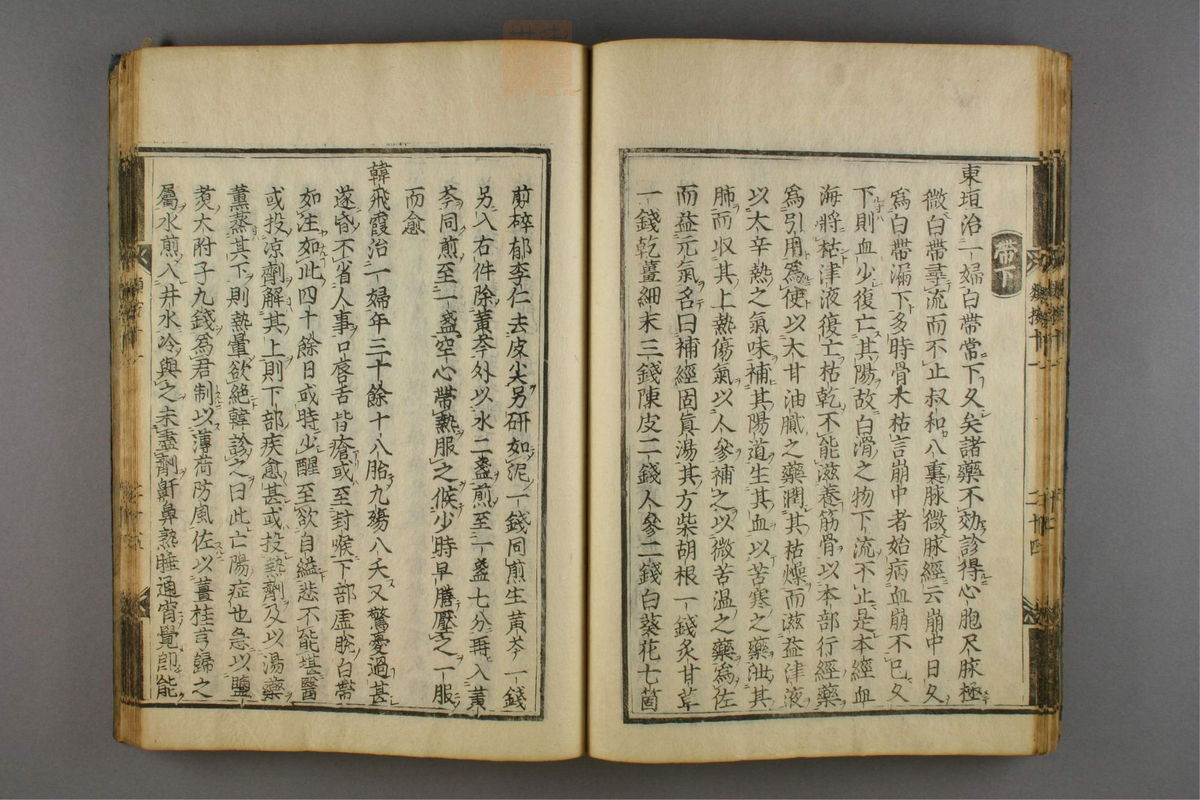 帶下
東垣治一婦白帶常下久矣諸藥不効診得心胞尺脉極
微白帶尋流而不止叔和八裏脉微脉經云崩中日久
爲白帶漏下多時骨木枯言崩中者始病血崩不已久
下則血少復亡其陽故白滑之物下流不止是本經血
海將枯津液復亡枯乾不能滋養筋骨以本部行經藥
爲引用爲使以大甘油膩之藥潤其枯燥而滋益津液
以大辛熱之氣味補其陽道生其血以苦寒之藥泄其
肺而收其上熱傷氣以人參補之以微苦温之藥爲佐
而益元氣名曰補經固眞湯其方柴胡根一錢炙甘草
一錢乾薑細末三錢陳皮二錢人參二錢白葵花七箇
剪碎郁李仁去皮尖另研如泥一錢同煎生黃芩一錢
另入右件除黃芩外以水二盞煎至一盞七分再入黃
芩同煎至一盞空心帶熱服之候少時早膳壓之一服
而愈
韓飛霞治一婦年三十餘十八胎九殤八夭又驚憂過甚
遂昏不省人事口唇舌皆瘡或至封喉下部虛脱白帶
如注如此四十餘日或時少醒至欲自縊悲不能堪醫
或投凉劑解其上則下部疾愈甚或投熱劑及以湯藥
薰蒸其下則熱暈欲絶韓診之曰此亡陽症也急以鹽
煑大附子九錢爲君制以薄荷防風佐以薑桂言歸之
屬水煎入井水冷與之未盡劑鼾鼻熟睡通宵覺卽能